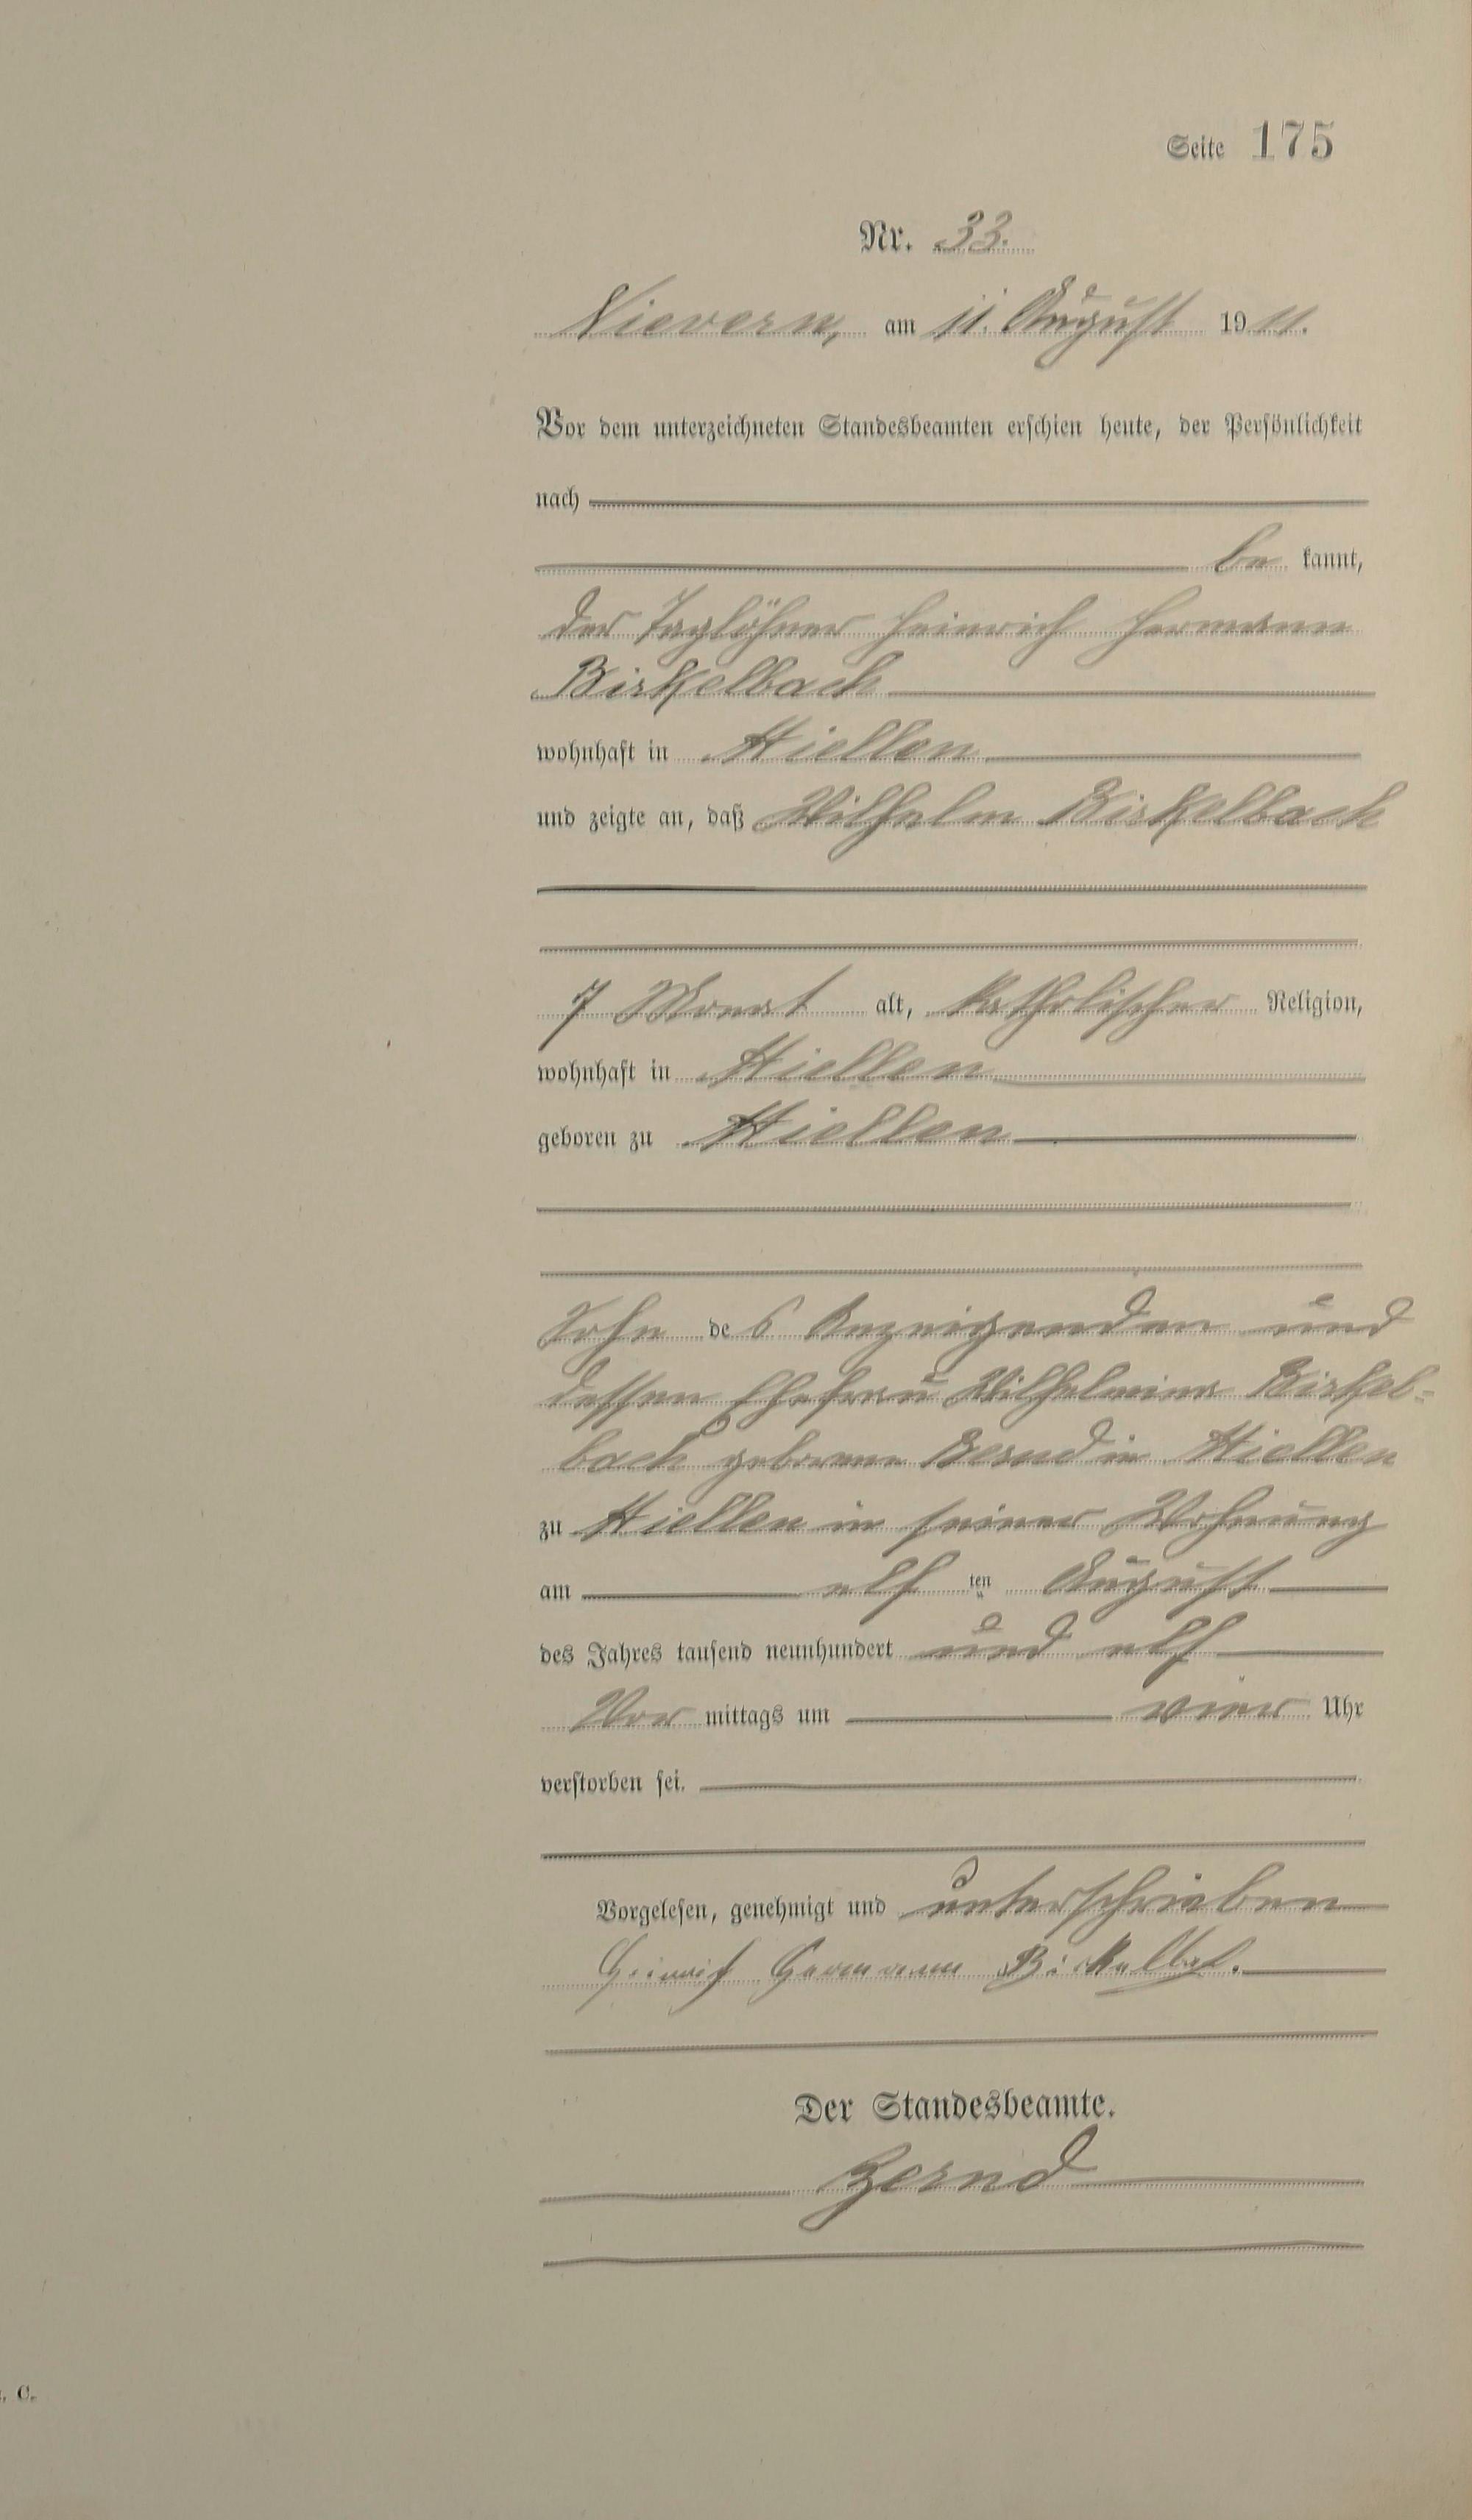 Seite 175
Nr. 33.
Nievern, am 11. August 1911.
Vor dem unterzeichneten Standesbeamten erschien heute, der Persönlichkeit
nach
be kannt,
der Taglöhner Heinrich Hermann
Birkelbach
wohnhaft in Miellen
und zeigte an, daß Wilhelm Birkelbach
7 Monat alt, katholischer Religion,
wohnhaft in Miellen
geboren zu Miellen
Sohn des Anzeigenden und
dessen Ehefrau Wilhelmine Birkel-
bach geborene Bernd in Miellen
zu Miellen in seiner Wohnung
am elf ten August
des Jahres tausend neunhundert und elf
Vor mittags um vier Uhr
verstorben sei.
Vorgelesen, genehmigt und unterschrieben
Heinrich Hermann Birkelbach.
Der Standesbeamte.
Bernd
. C.